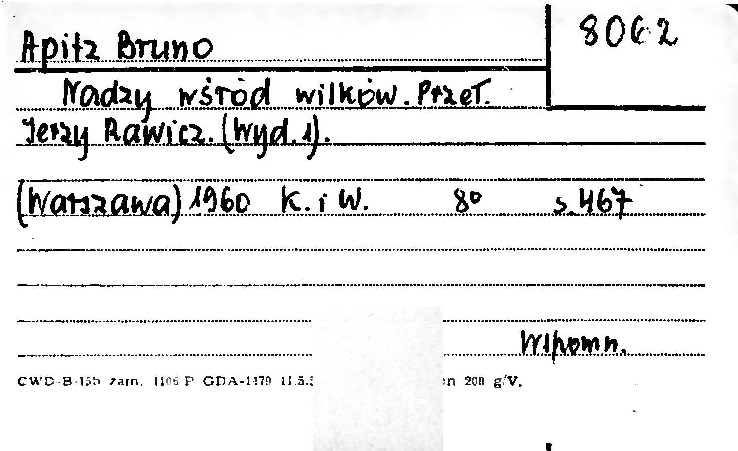 Apitz Bruno
8062
Nadzy wśród wilków. Przeł.
Jerzy Rawicz. (Wyd. 1).
(Warszawa) 1960 K. i W. 8° s. 467
Wspomn.
CWD-B-15b zam. 1106 P GDA-1479 11.5. n 200 g/V.